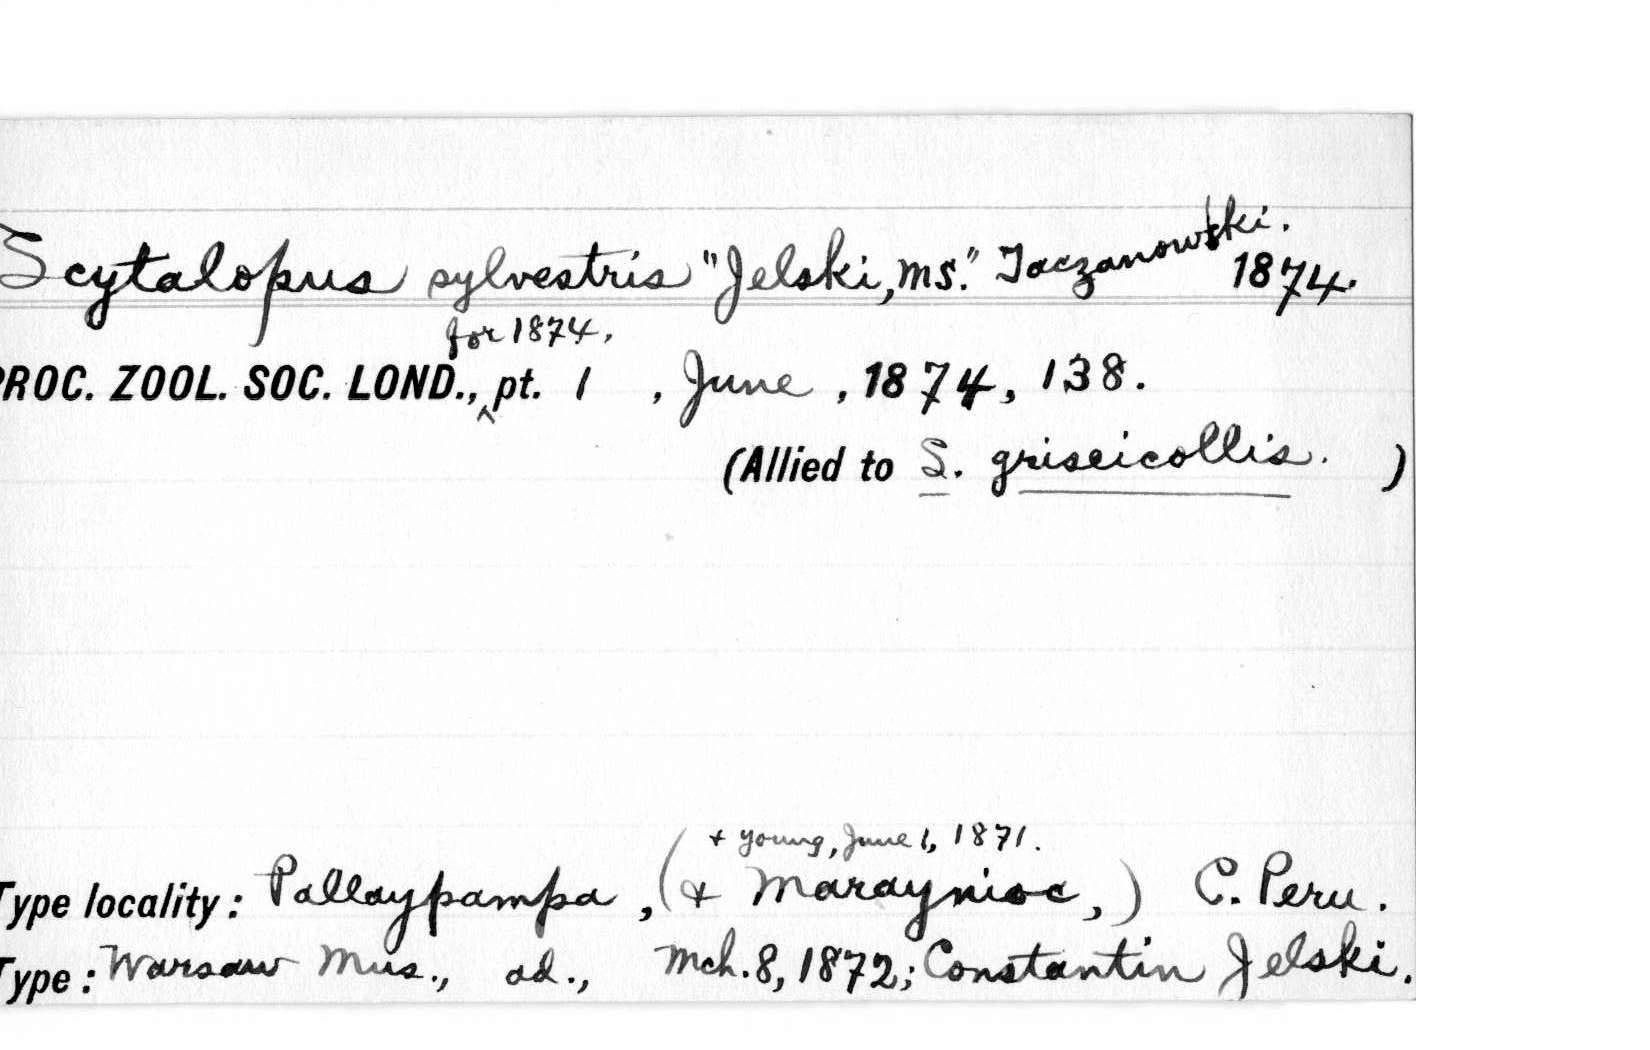 Scytalopus sylvestris "Jelski, MS." Taczanowski. 1874.
for 1874,
PROC. ZOOL. SOC. LOND., pt. 1, June, 1874, 138.
(Allied to S. griseicollis. )
+ young, June 1, 1871.
Type locality: Pallaypampa, (+ Maraynioc,) C. Peru.
Type: Warsaw Mus., ad., Mch. 8, 1872; Constantin Jelski.